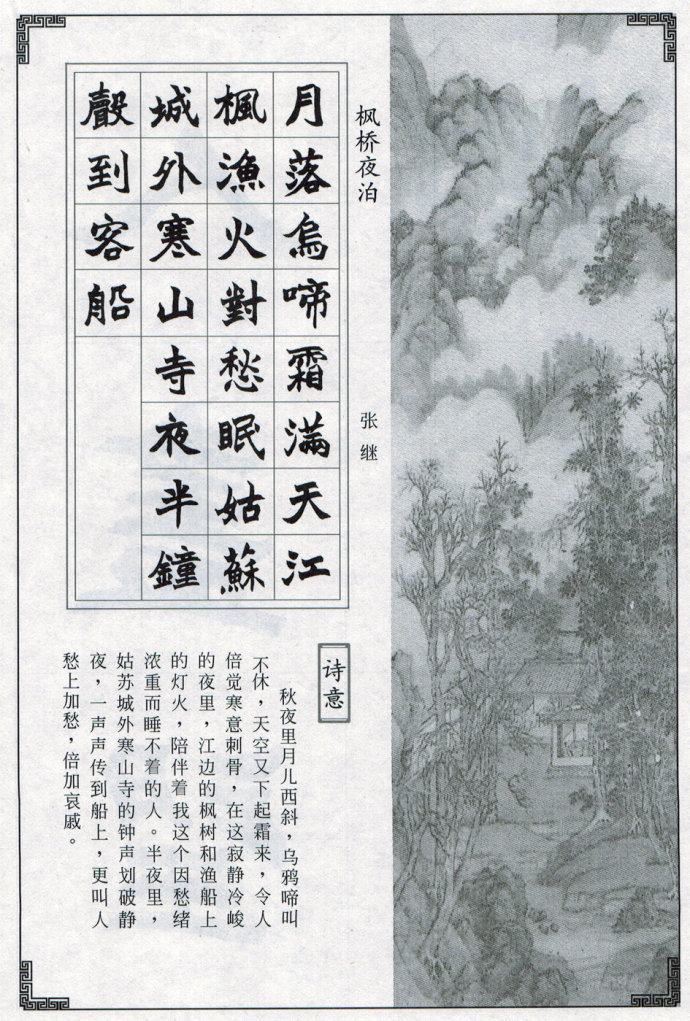 枫桥夜泊
张继
月落烏啼霜滿天江
楓漁火對愁眠姑蘇
城外寒山寺夜半鐘
聲到客船
诗意
秋夜里月儿西斜，乌鸦啼叫
不休，天空又下起霜来，令人
倍觉寒意刺骨，在这寂静冷峻
的夜里，江边的枫树和渔船上
的灯火，陪伴着我这个因愁绪
浓重而睡不着的人。半夜里，
姑苏城外寒山寺的钟声划破静
夜，一声声传到船上，更叫人
愁上加愁，倍加哀戚。